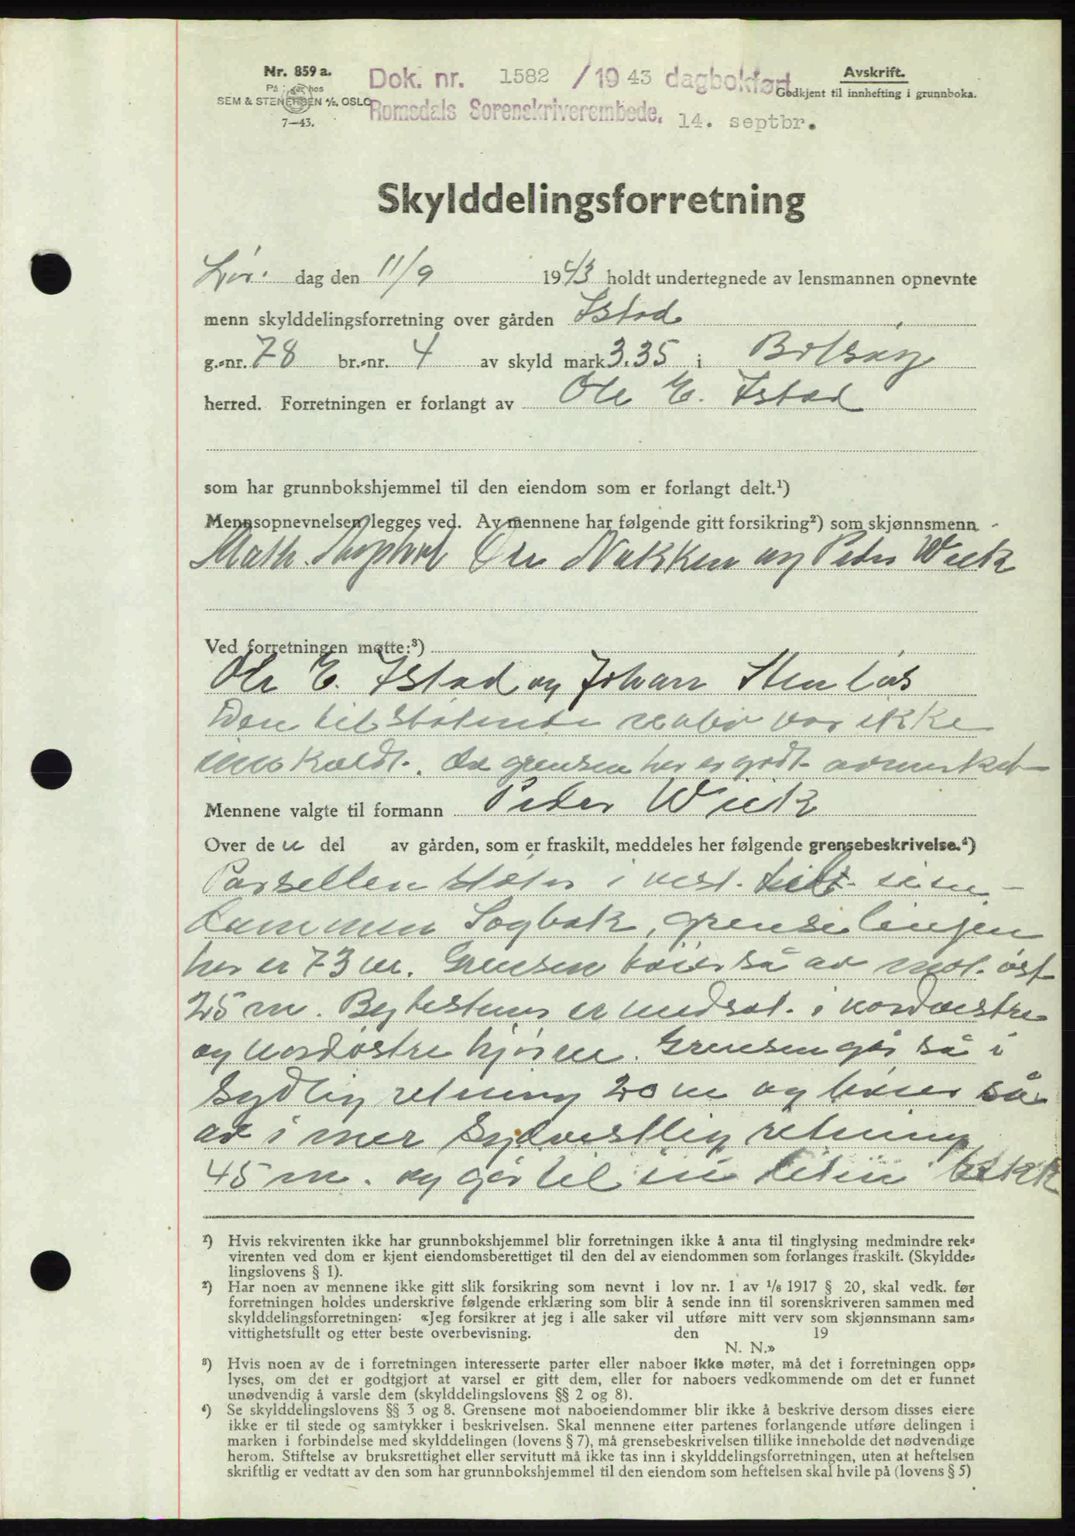 Nr. 859 a.
På lager hos
SEM & STENERSEN A/S, OSLO
7—43.
Dok. nr. 1582 /19 43 dagbokført
Romsdals Sorenskriverembede. 14. septbr.
Avskrift.
Godkjent til innhefting i grunnboka.
Skylddelingsforretning
Lør. dag den 11/9 1943 holdt undertegnede av lensmannen opnevnte
menn skylddelingsforretning over gården Istad
g.-nr. 78 br.-nr. 4 av skyld mark 3.35 i Bolsøy
herred. Forretningen er forlangt av Ole E. Istad
som har grunnbokshjemmel til den eiendom som er forlangt delt.¹)
Mennsopnevnelsen legges ved. Av mennene har følgende gitt forsikring²) som skjønnsmenn
Math. Nakken og Peter Wiik
Ved forretningen møtte:³)
Ole E. Istad og Johan Stenløs
Den tilstøtende nabo var ikke
innkaldt. da grensen her er godt avmerket
Mennene valgte til formann Peter Wiik
Over de n del av gården, som er fraskilt, meddeles her følgende grensebeskrivelse.⁴)
Parsellen støter i vest. eien-
dommen Sagbak, grenselinjen
her er 73 m. Grensen bøier så av mot. øst
25 m. Bytestener er nedsat. i nordvestre
og nordøstre hjørne. Grensen går så i
sydlig retning 20 m og bøier så
av i mer sydvestlig retning
45 m. og går til en liten bekk
¹) Hvis rekvirenten ikke har grunnbokshjemmel blir forretningen ikke å anta til tinglysing medmindre rek-
virenten ved dom er kjent eiendomsberettiget til den del av eiendommen som forlanges fraskilt. (Skyldde-
lingslovens § 1).
²) Har noen av mennene ikke gitt slik forsikring som nevnt i lov nr. 1 av 1/6 1917 § 20, skal vedk. før
forretningen holdes underskrive følgende erklæring som blir å sende inn til sorenskriveren sammen med
skylddelingsforretningen: «Jeg forsikrer at jeg i alle saker vil utføre mitt verv som skjønnsmann sam-
vittighetsfullt og etter beste overbevisning. den 19
N. N.»
³) Hvis noen av de i forretningen interesserte parter eller naboer ikke møter, må det i forretningen opp-
lyses, om det er godtgjort at varsel er gitt dem, eller for naboers vedkommende om det er funnet
unødvendig å varsle dem (skylddelingslovens §§ 2 og 8).
⁴) Se skylddelingslovens §§ 3 og 8. Grensene mot naboeiendommer blir ikke å beskrive dersom disses eiere
ikke er til stede og samtykker i beskrivelsen. Skal mennene etter partenes forlangende utføre delingen i
marken i forbindelse med skylddelingen (lovens § 7), må grensebeskrivelsen tillike inneholde det nødvendige
herom. Stiftelse av bruksrettighet eller servitutt må ikke tas inn i skylddelingsforretningen, uten at heftelsen
skriftlig er vedtatt av den som har grunnbokshjemmel til den eiendom som heftelsen skal hvile på (lovens § 5)